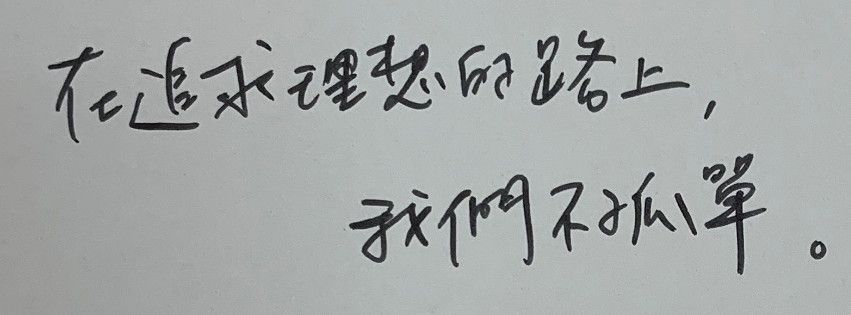 在追求理想的路上,
我們不孤單。